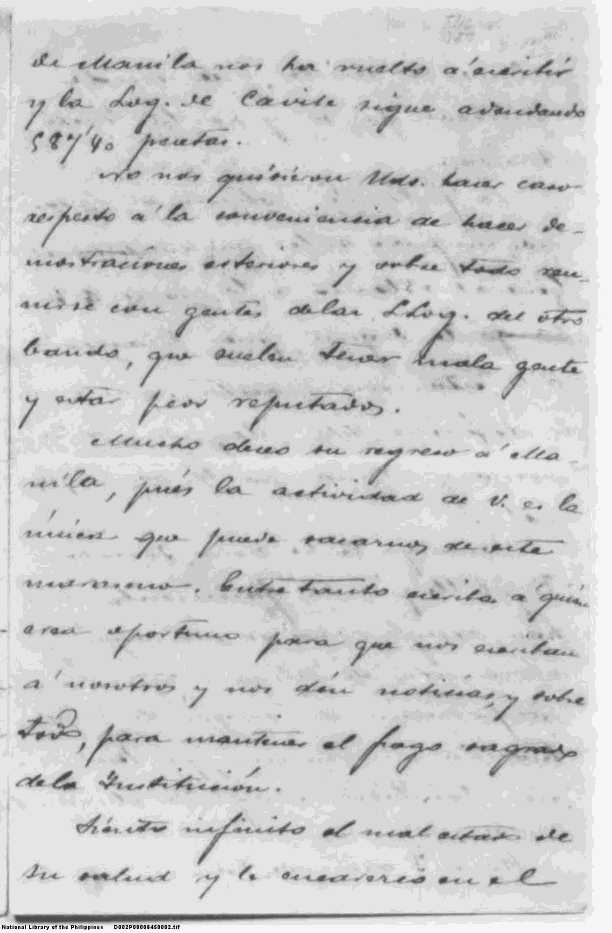 de Manila nos ha vuelto á escribir
y la Log. de Cavite sigue adeudando
587'40 pesetas.
No nos quisieron Uds. hacer caso
respecto á la conveniencia de hacer de-
mostraciones exteriores y sobre todo reu-
nirse con gentes de las LLog. del otro
bando, que suelen tener mala gente
y estar peor reputados.
Mucho deseo su regreso á Ma-
nila, pués la actividad de V. es la
única que puede sacarnos de este
marasmo. Entretanto escriba á quién
crea oportuno para que nos escriban
á nosotros y nos dén noticias, y sobre
todo, para mantener el fuego sagrado
de la Institución.
Siento infinito el mal estado de
su salud y le en el
National Library of the Philippines D002P00000450002.tif